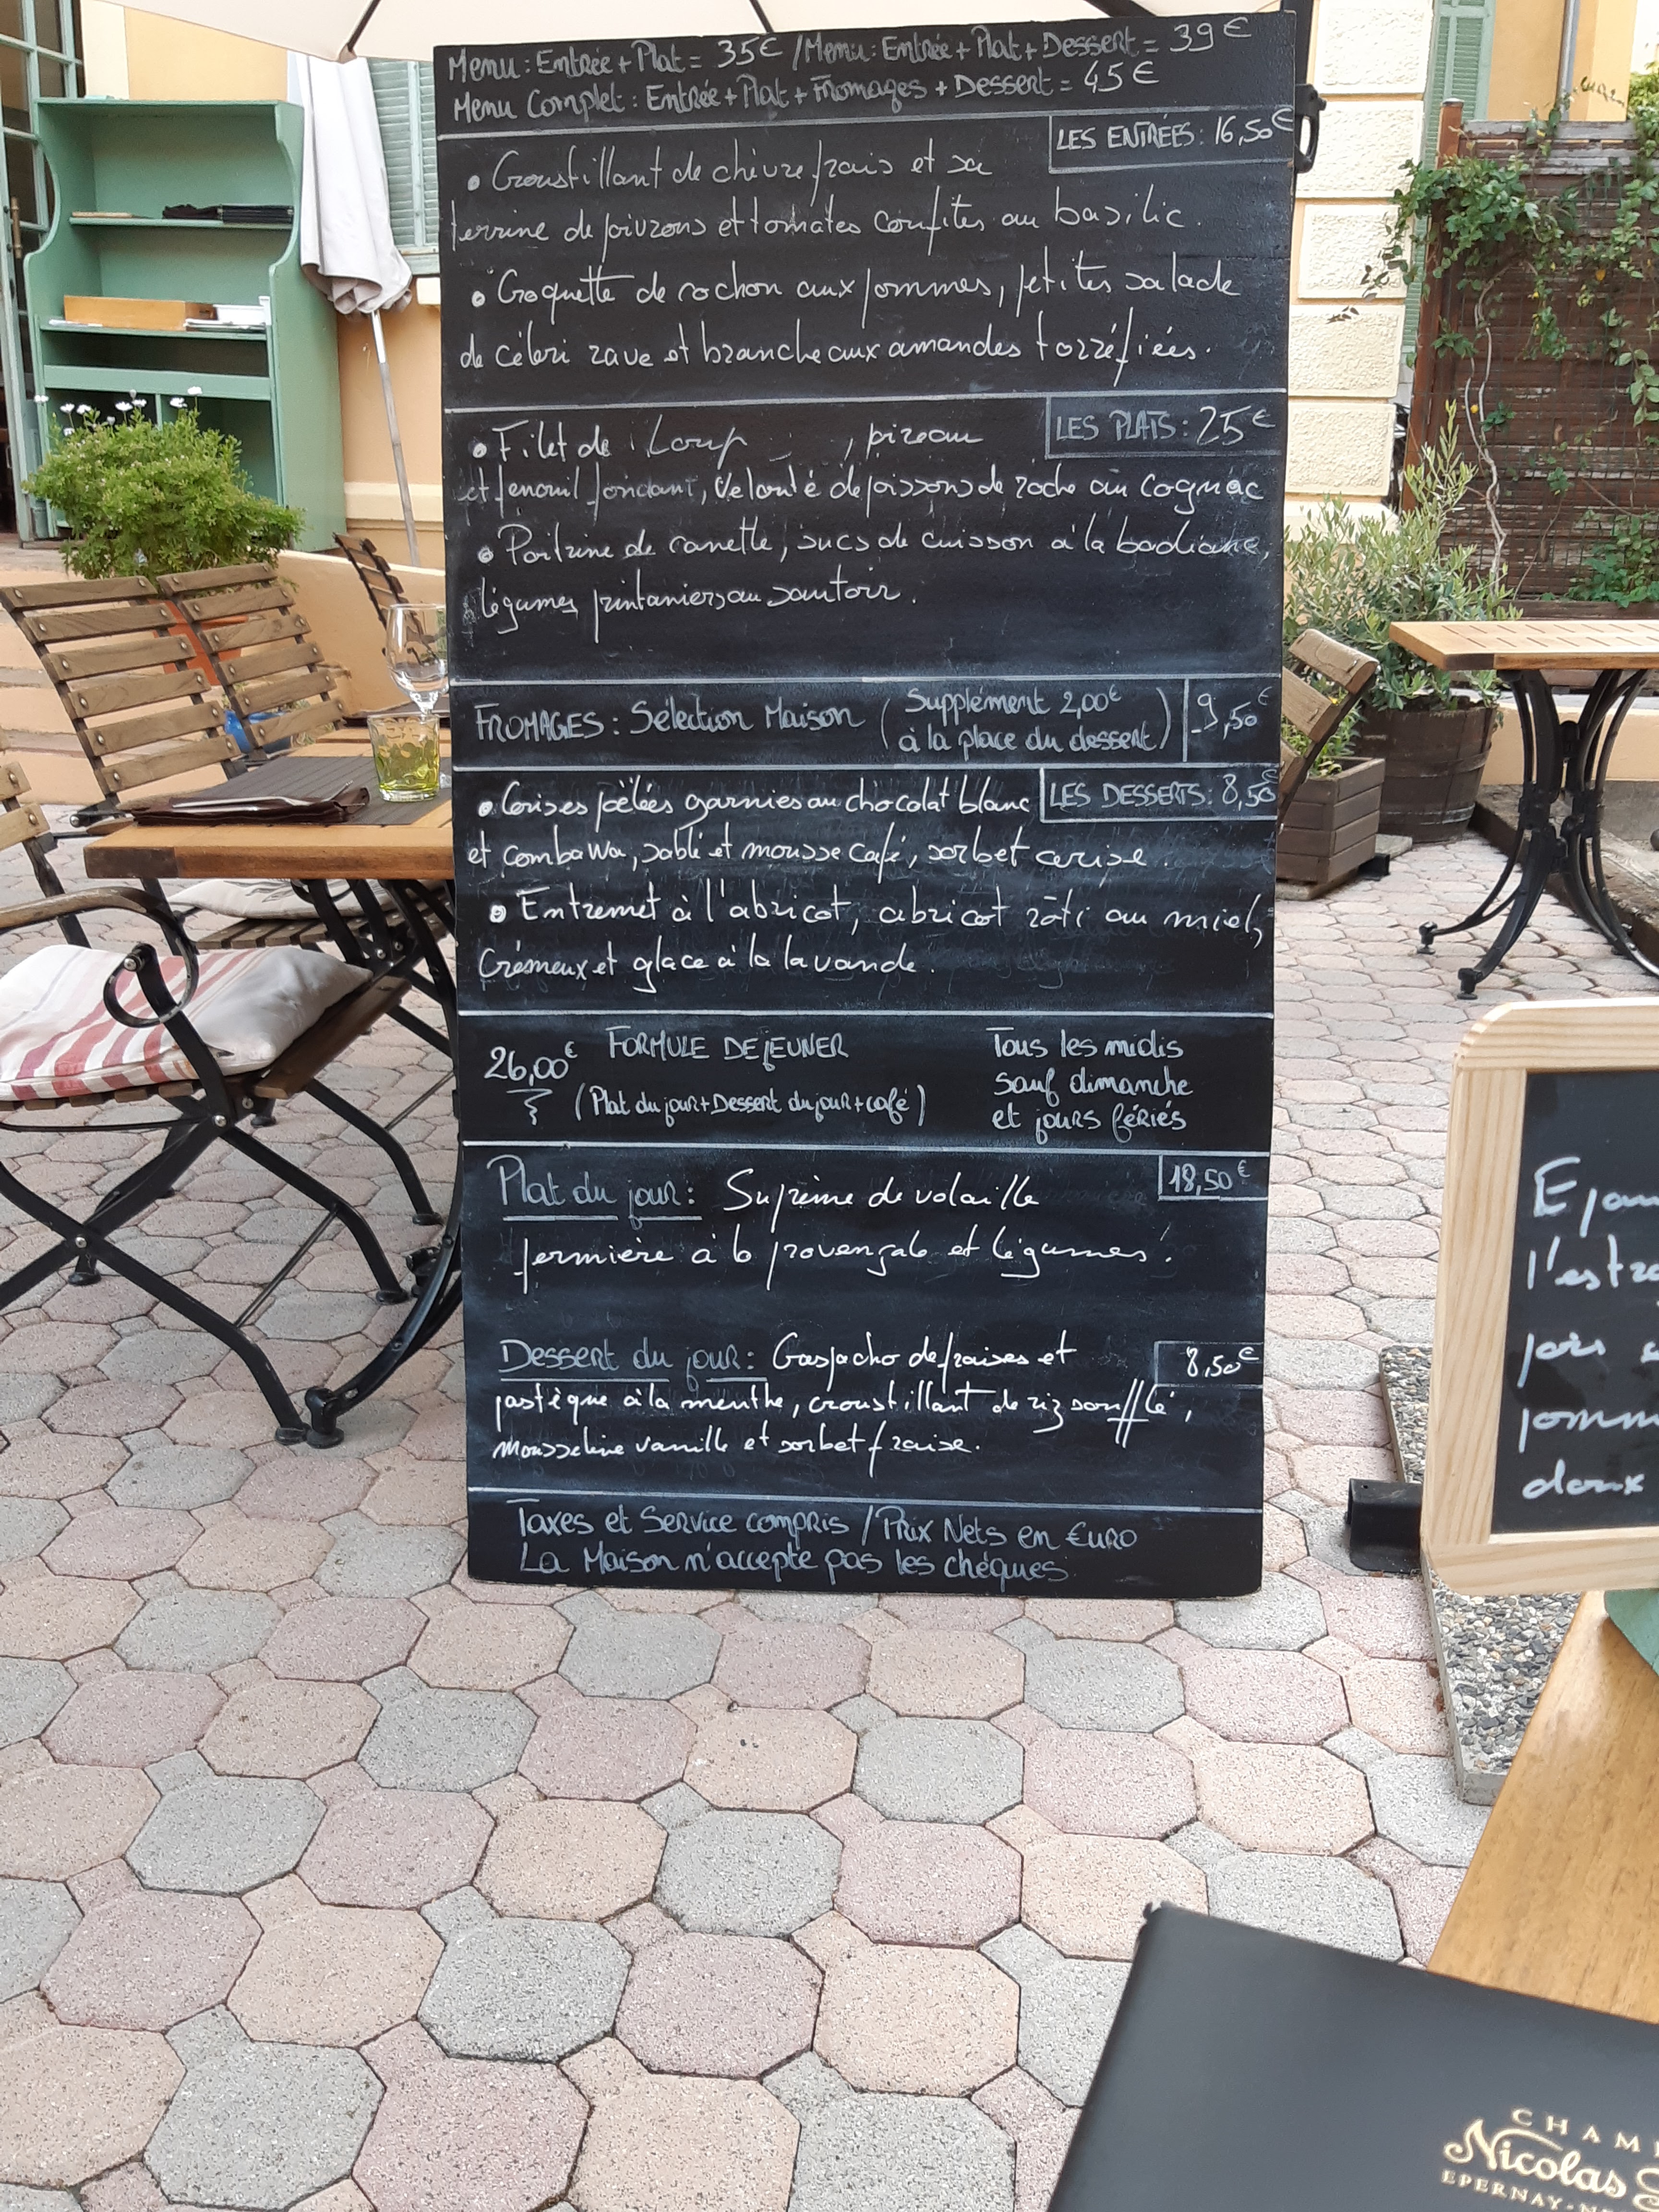 Menu : Entrée + Plat = 35€ / Menu : Entrée + Plat + Dessert = 39€
Menu Complet : Entrée + Plat + Fromages + Dessert = 45€
LES ENTRÉES : 16,50€
• Croustillant de chèvre frais et sa
terrine de poivrons et tomates confites au basilic.
• Croquette de cochon aux pommes, petites salade
de céleri rave et branche aux amandes torréfiées.
LES PLATS : 25€
• Filet de Loup , pizeau
et fenouil fondant, velouté de poissons de roche au cognac
• Poitrine de canette, sucs de cuisson à la badiane,
légumes printaniers au sautoir.
FROMAGES : Sélection Maison (Supplément 2,00€
à la place du dessert) 9,50€
LES DESSERTS : 8,50€
• Cerises poêlées garnies au chocolat blanc
et combawa, sablé et mousse café, sorbet cerise.
• Entremet à l'abricot, abricot rôti au miel,
Crémeux et glace à la lavande.
26,00€ FORMULE DEJEUNER
(Plat du jour + Dessert du jour + café)
Tous les midis
sauf dimanche
et jours fériés
Plat du jour : Suprême de volaille 18,50€
fermière à la provençale et légumes.
Dessert du jour : Gaspacho de fraises et 8,50€
pastèque à la menthe, croustillant de riz soufflé,
mousseline vanille et sorbet fraise.
Taxes et Service compris / Prix Nets en €uro
La Maison n'accepte pas les chéques.
l'est
pois
pomm
doux
CHAM
Nicolas
EPERNAY